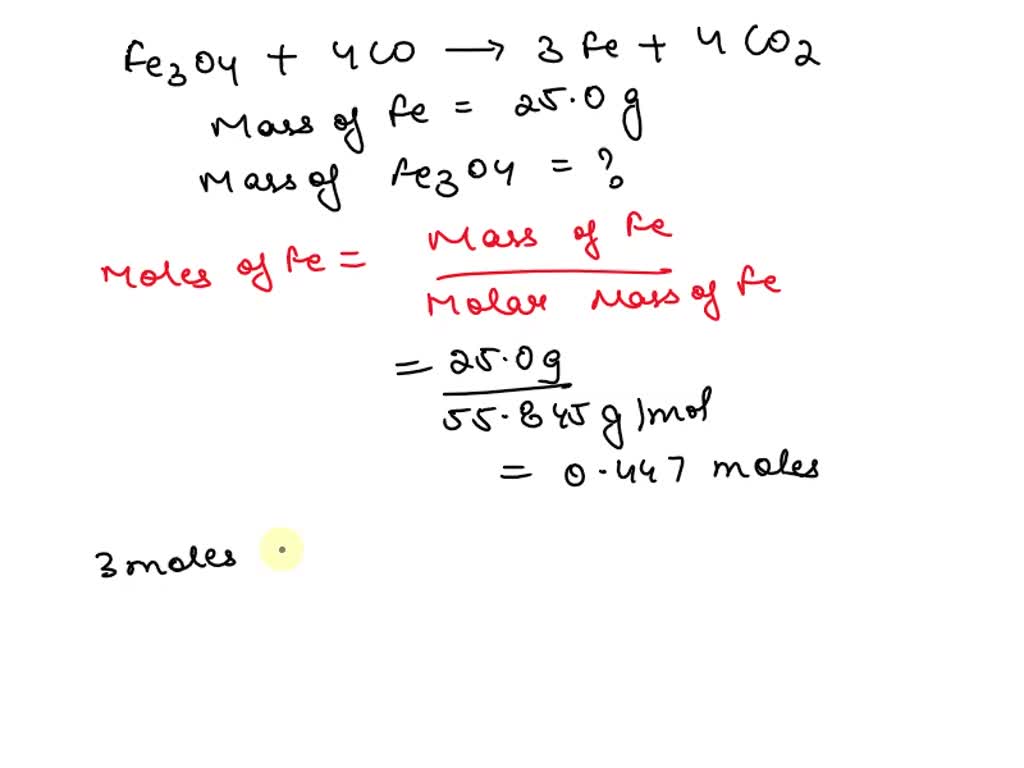 Fe3O4 + 4CO → 3 Fe + 4 CO2
Mass of Fe = 25.0 g
Mass of Fe3O4 = ?
Moles of Fe = Mass of Fe
Molar Mass of Fe
= 25.0 g
55.845 g/mol
= 0.447 moles
3 moles